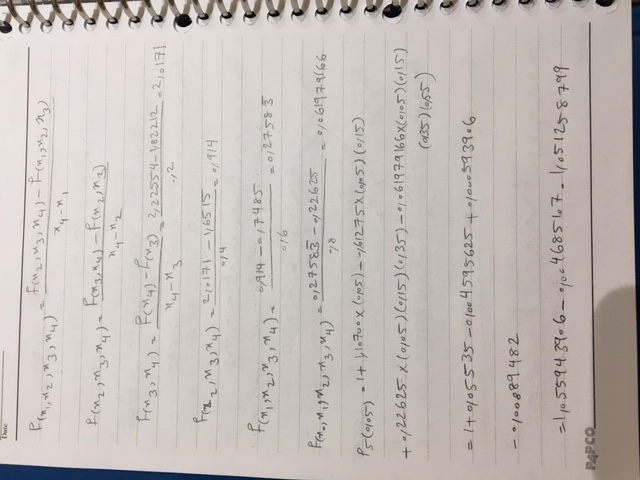 Date
f(x₁,x₂,x₃,x₄) = f(x₂,x₃,x₄) - f(x₁,x₂,x₃) / x₄-x₁
f(x₂,x₃,x₄) = f(x₃,x₄) - f(x₂,x₃) / x₄-x₂
f(x₃,x₄) = f(x₄) - f(x₃) / x₄-x₃ = 2,22554-1,82212 / ,2 = 2,0171
f(x₂,x₃,x₄) = 2,0171 - 1,6515 / 0,4 = 0,914
f(x₁,x₂,x₃,x₄) = 0,914 - 0,7485 / 0,6 = 0,27583
f(x₀,x₁,x₂,x₃,x₄) = 0,27583 - 0,22625 / 0,8 = 0,061979166
P₅(0,05) = 1+1,10700×(0,05) - 0,61275×(0,05)(0,15)
+ 0,22625×(0,05)(0,15)(0,35) - 0,061979166×(0,05)(0,15)
(0,35)(0,55)
= 1+0,05535 - 0,004595625 + 0,000593906
- 0,00889482
= 1,055943906 - 0,004685107 = 1,051258799
PAPCO